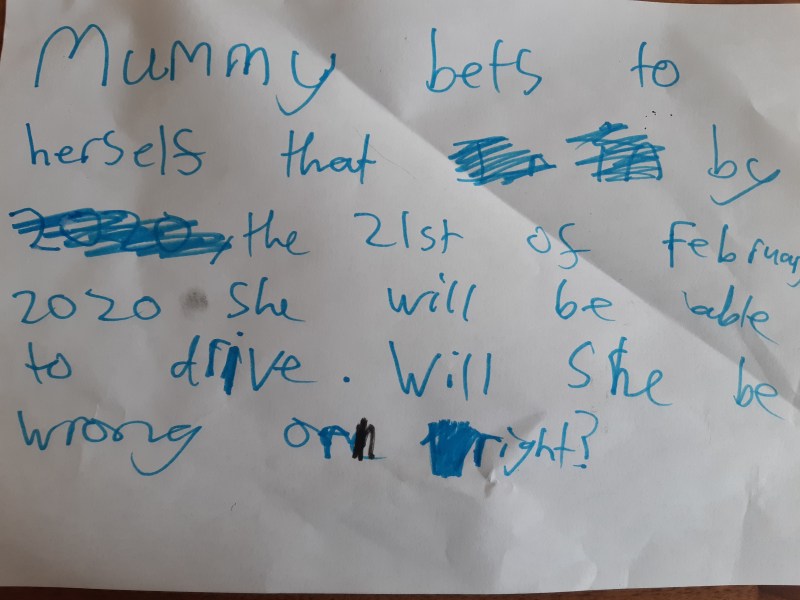 Mummy bets to
herself that by
the 21st of February
2020 she will be able
to drive. Will She be
wrong orn right?